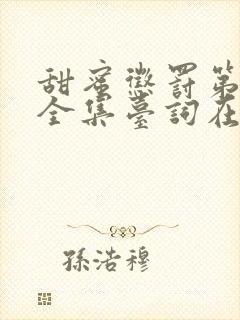 甜蜜懲罰第
全集臺詞在
孫浩穆